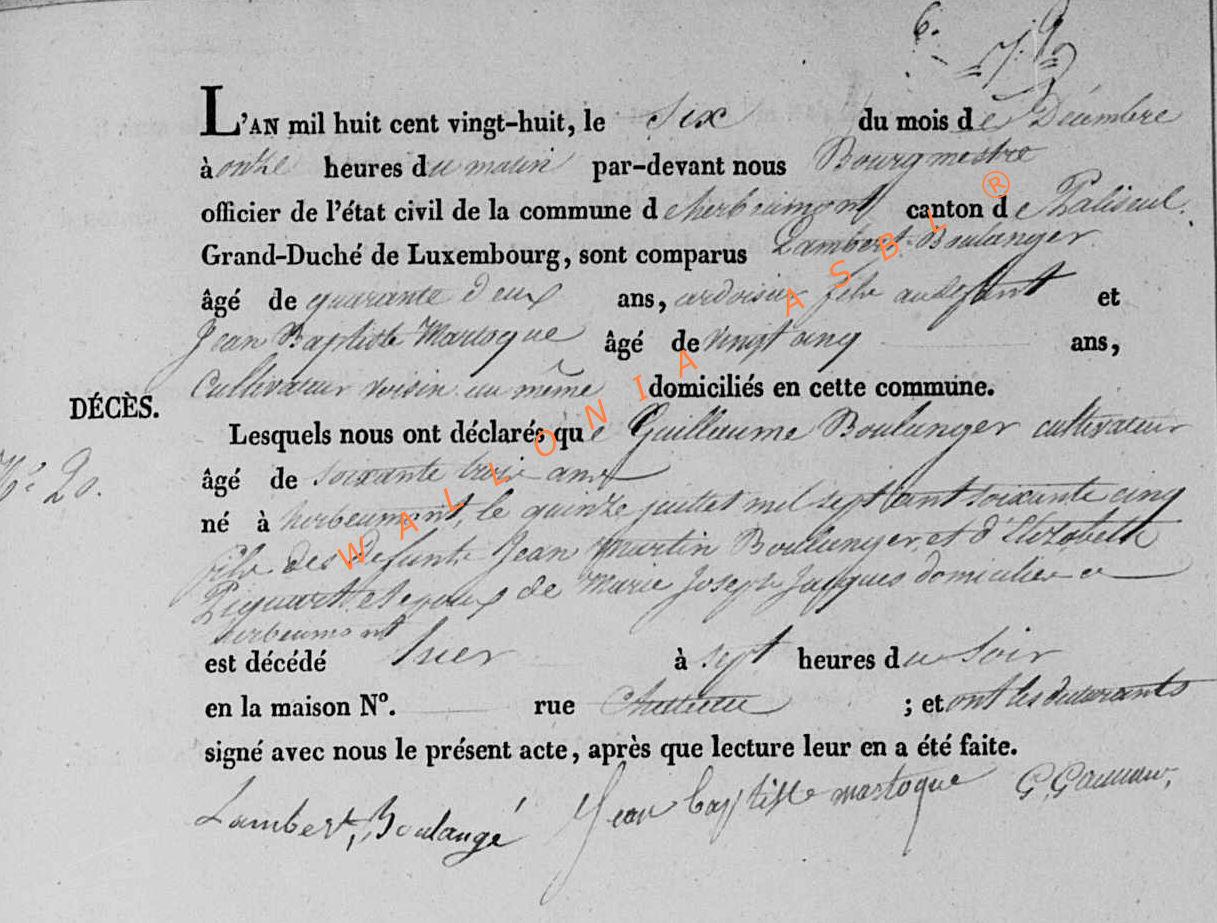 6.
L'AN mil huit cent vingt-huit, le Six du mois de Décembre
à onze heures du matin par-devant nous Bourgmestre
officier de l'état civil de la commune d'herbeumont canton de Paliseul.
Grand-Duché de Luxembourg, sont comparus Lambert Boulanger
âgé de quarante deux ans, ardoisier fils au defunt et
Jean Baptiste Martoque âgé de vingt cinq ans,
Cultivateur voisin au même domiciliés en cette commune.
DÉCÈS.
Lesquels nous ont déclarés que Guillaume Boulanger cultivateur
Nº 20.
âgé de soixante trois ans
né à herbeumont, le quinze juillet mil sept cent soixante cinq
fils des defunts Jean Martin Boulanger, et d'Elizabeth
Piquart, et epoux de Marie Joseph Jacques domiciliée a
herbeumont
est décédé hier à sept heures du Soir
en la maison Nº. rue ; et ont les declarants
signé avec nous le présent acte, après que lecture leur en a été faite.
Lambert, Boulangé Jean baptiste martoque G.
WALLONIA ASBL ®